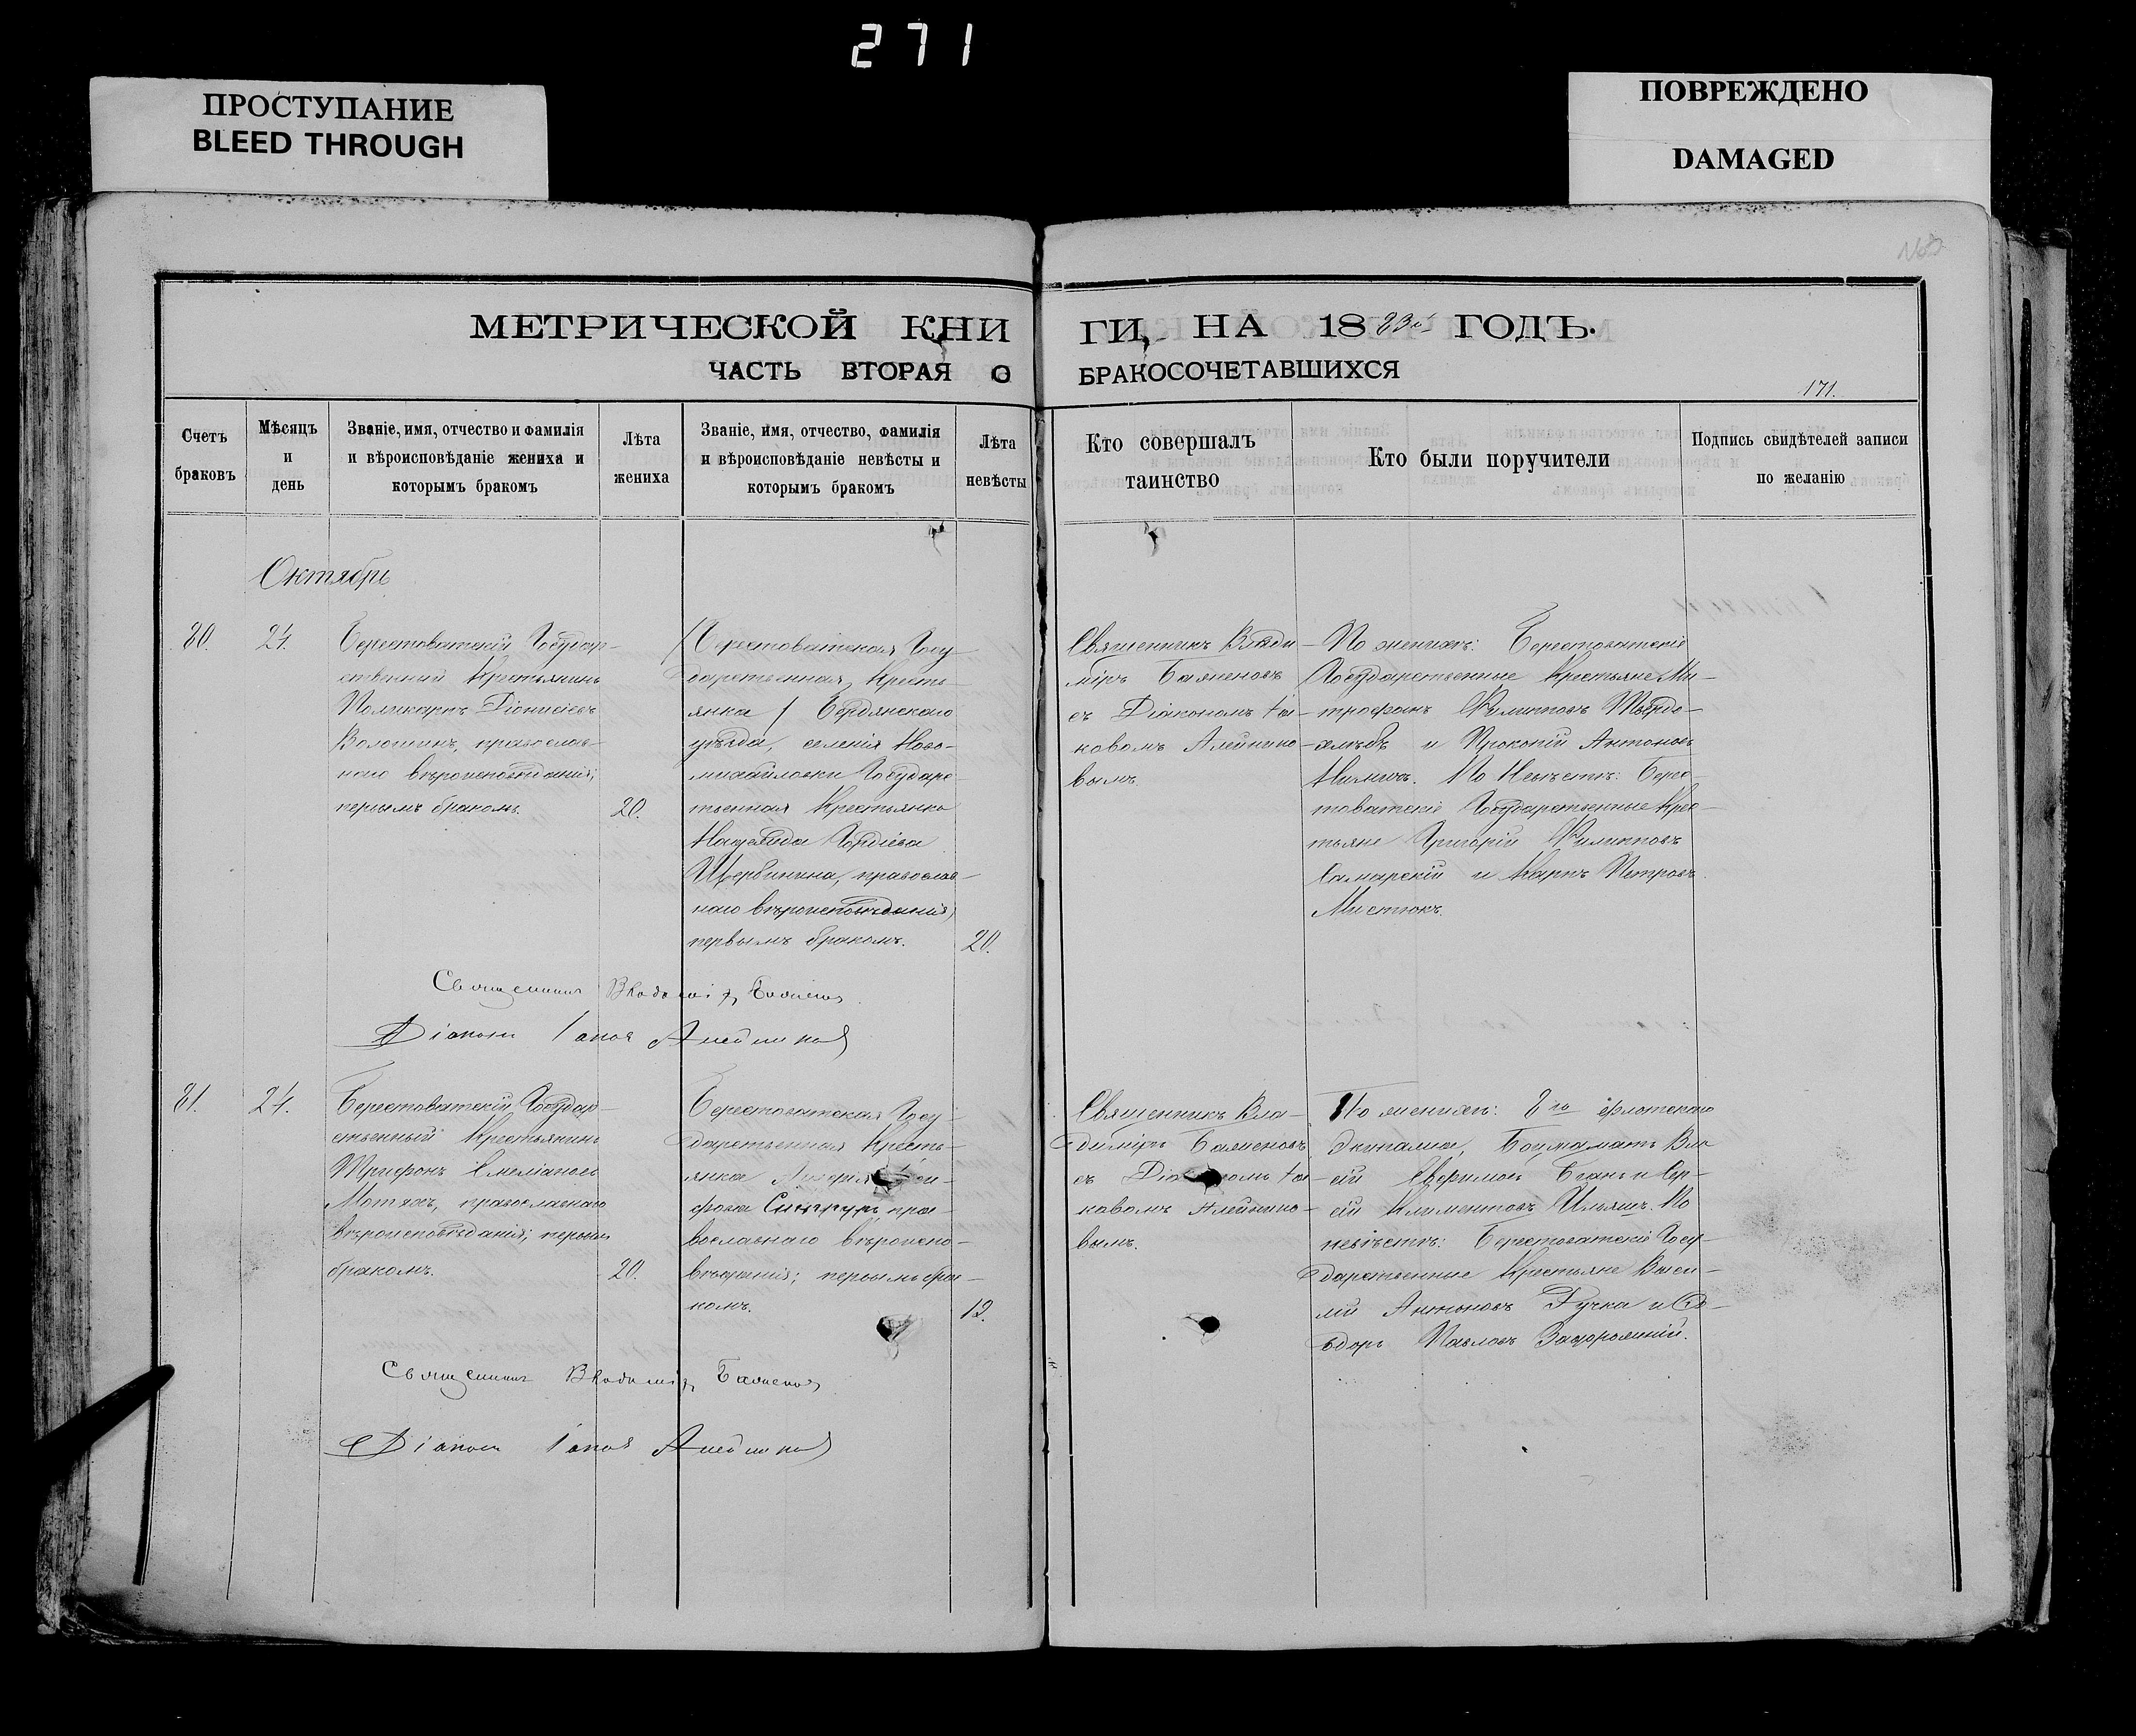 271
ПРОСТУПАНИЕ
BLEED THROUGH
ПОВРЕЖДЕНО
DAMAGED
МЕТРИЧЕСКОЙ КНИ
ГИ, НА 1883й ГОДЪ.
ЧАСТЬ ВТОРАЯ О
БРАКОСОЧЕТАВШИХСЯ
171.
Счетъ браковъ
Мѣсяцъ и день
Званіе, имя, отчество и фамилія
и вѣроисповѣданіе жениха и
которымъ бракомъ
Лѣта жениха
Званіе, имя, отчество, фамилія
и вѣроисповѣданіе невѣсты и
которымъ бракомъ
Лѣта невѣсты
Кто совершалъ
таинство
Кто были поручители
Подпись свидѣтелей записи
по желанію
Октябрь
80.
24.
Берестоватскій Государ-
ственный Крестьянинъ
Поликарпъ Діонисіевъ
Волошинъ, православ-
наго вѣроисповѣданія;
первымъ бракомъ.
20.
Берестоватская Госу-
дарственная Кресть-
янка / Бердянскаго
уѣзда, селенія Ново-
михайловки Государс-
твенная Крестьянка
Надежда Гордіева
Щербинина, православ-
наго вѣроисповѣданія;
первымъ бракомъ.
20.
Священникъ Влади-
міръ Баженовъ
съ Діакономъ Іа-
ковомъ Алейнико-
вымъ.
По женихѣ: Берестоватскіе
Государственные Крестьяне Ми-
трофанъ Филиповъ
и Прокопій Антоновъ
По Невѣстѣ: Берес-
товатскіе Государственные Крес-
тьяне Григорій Филиповъ
Самарскій и Карпъ Петровъ
Мистюкъ.
Священникъ Владиміръ Баженовъ
Діаконъ Іаковъ Алейниковъ
81.
24.
Берестоватскій Государ-
ственный Крестьянинъ
Трифонъ Емеліановъ
Мотяхъ, православнаго
вѣроисповѣданія; первымъ
бракомъ.
20.
Берестоватская Госу-
дарственная Кресть-
янка
пра-
вославнаго вѣроиспо-
вѣданія; первымъ бра-
комъ.
Священникъ Вла-
диміръ Баженовъ
съ Діакономъ Іа-
ковомъ Алейнико-
вымъ.
По женихѣ: 2го флотскаго
Экипажа, Боцманматъ
Ефимовъ и Сер-
гій Климентовъ Ильяшъ. По
невѣстѣ: Берестоватскіе Госу-
дарственные Крестьяне Васи-
лій Антоновъ Ручка и Ѳе-
одоръ Павловъ Загорожній.
Священникъ Владиміръ Баженовъ
Діаконъ Іаковъ Алейниковъ